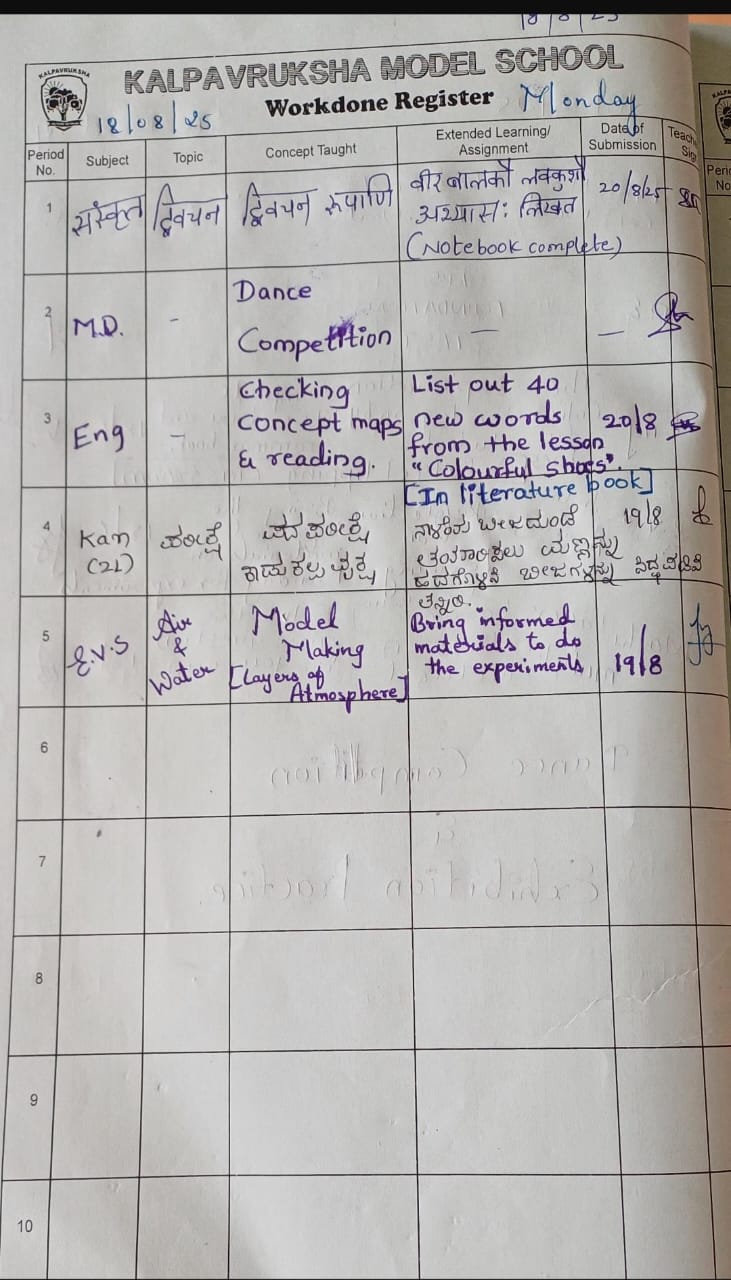 18/8/25
KALPAVRUKSHA
KALPAVRUKSHA MODEL SCHOOL
Workdone Register
Monday
18/08/25
Period No.
Subject
Topic
Concept Taught
Extended Learning/
Assignment
Date of
Submission
1
संस्कृत
द्विवचन
द्विवचन रूपाणि
वीर बालकौ लवकुशौ
अभ्यासः लिखत
(Notebook complete)
20/8/25
2
M.D.
-
Dance
Competition
—
—
3
Eng
-
Checking
Concept maps
& reading.
List out 40
new words
from the lesson
"Colourful shoes".
[In literature book]
20/8
4
Kan
(2L)
ಪರೀಕ್ಷೆ
ಪದ ಪರೀಕ್ಷೆ
ಬೀಜದುಂಡೆ
ಮಣ್ಣನ್ನು
ಬೀಜಗಳನ್ನು
ತನ್ನಿರಿ.
19/8
5
E.V.S
Air
&
Water
Model
Making
[Layers of
Atmosphere]
Bring informed
materials to do
the experiments
19/8
6
7
8
9
10